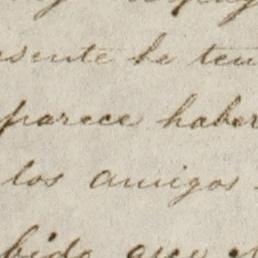 sente he ten
parece haber
los amigos
bido que